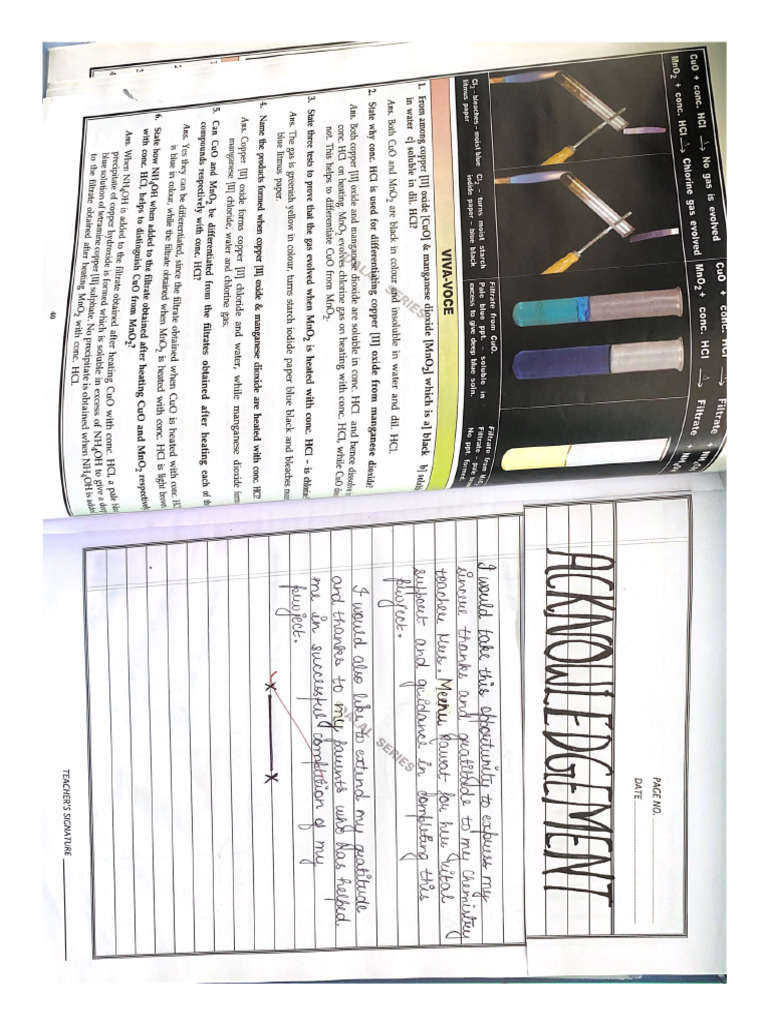 CuO + conc. HCl → No gas is evolved
MnO2 + conc. HCl → Chlorine gas evolved
CuO + conc. HCl → Filtrate +
MnO2 + conc. HCl → Filtrate +
Cl2 - bleaches - moist blue
litmus paper
Cl2 - turns moist starch
iodide paper - blue black
Filtrate from CuO.
Pale blue ppt. - soluble in
excess to give deep blue soln.
Filtrate from
Filtrate - pale
No ppt. formed
VIVA-VOCE
1. From among copper [II] oxide [CuO] & manganese dioxide [MnO2] which is a] black b]
in water c] soluble in dil. HCl?
Ans. Both CuO and MnO2 are black in colour and insoluble in water and dil. HCl.
2. State why conc. HCl is used for differentiating copper [II] oxide from manganese dioxide?
Ans. Both copper [II] oxide and manganese dioxide are soluble in conc. HCl and hence
conc. HCl on heating MnO2 evolves chlorine gas on heating with conc. HCl, while CuO
not. This helps to differentiate CuO from MnO2.
3. State three tests to prove that the gas evolved when MnO2 is heated with conc. HCl - is
Ans. The gas is greenish yellow in colour, turns starch iodide paper blue black and bleaches
blue litmus paper.
4. Name the products formed when copper [II] oxide & manganese dioxide are heated with conc. HCl?
Ans. Copper [II] oxide forms copper [II] chloride and water, while manganese dioxide
manganese [II] chloride, water and chlorine gas.
5. Can CuO and MnO2 be differentiated from the filtrates obtained after heating each of
compounds respectively with conc. HCl?
Ans. Yes they can be differentiated, since the filtrate obtained when CuO is heated with conc.
is blue in colour, while the filtrate obtained when MnO2 is heated with conc. HCl is light
6. State how NH4OH when added to the filtrate obtained after heating CuO and MnO2
with conc. HCl, helps to distinguish CuO from MnO2?
Ans. When NH4OH is added to the filtrate obtained after heating CuO with conc. HCl, a pale
precipitate of copper hydroxide is formed which is soluble in excess of NH4OH to give a
blue solution of tetramine copper [II] sulphate. No precipitate is obtained when NH4OH is
to the filtrate obtained after heating MnO2 with conc. HCl.
PAGE NO.
DATE
ACKNOWLEDGEMENT
I would take this opportunity to express my
sincere thanks and gratitude to my Chemistry
teacher Mrs. Meenu Rawat for her vital
support and guidance in completing this
project.
I would also like to extend my gratitude
and thanks to my parents who has helped
me in successful completion of my
project.
x x
TEACHER'S SIGNATURE